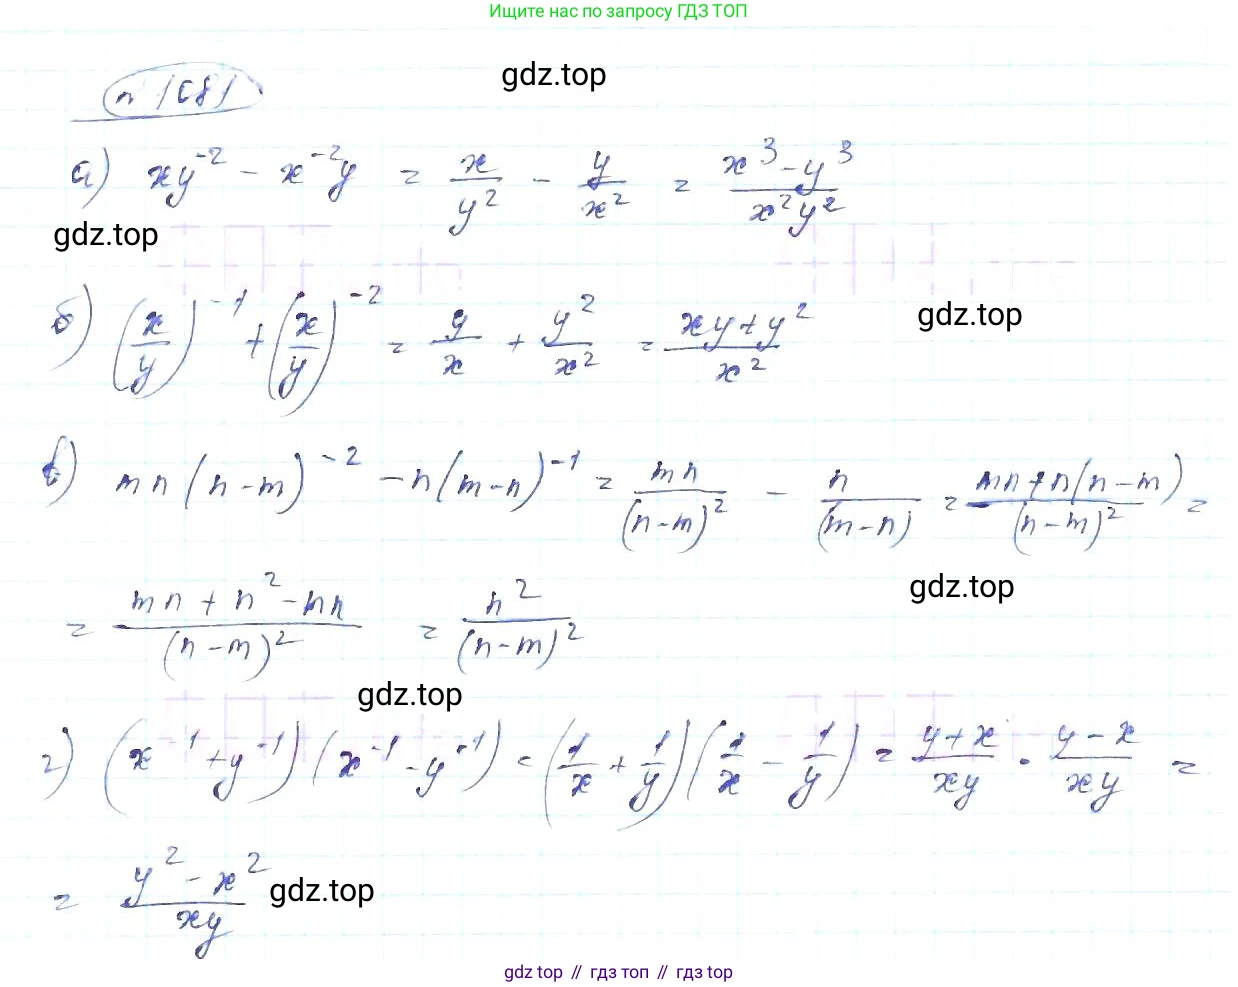 Ищите нас по запросу ГДЗ ТОП
n 1081
gdz.top
а) xy^{-2} - x^{-2}y = \frac{x}{y^2} - \frac{y}{x^2} = \frac{x^3 - y^3}{x^2 y^2}
gdz.top
б) (\frac{x}{y})^{-1} + (\frac{x}{y})^{-2} = \frac{y}{x} + \frac{y^2}{x^2} = \frac{xy + y^2}{x^2}
gdz.top
в) mn(n-m)^{-2} - n(m-n)^{-1} = \frac{mn}{(n-m)^2} - \frac{n}{(m-n)} = \frac{mn + n(n-m)}{(n-m)^2} =
gdz.top
= \frac{mn + n^2 - mn}{(n-m)^2} = \frac{n^2}{(n-m)^2}
gdz.top
г) (x^{-1} + y^{-1})(x^{-1} - y^{-1}) = (\frac{1}{x} + \frac{1}{y})(\frac{1}{x} - \frac{1}{y}) = \frac{y+x}{xy} \cdot \frac{y-x}{xy} =
= \frac{y^2 - x^2}{xy}
gdz.top
gdz top // гдз топ // гдз top